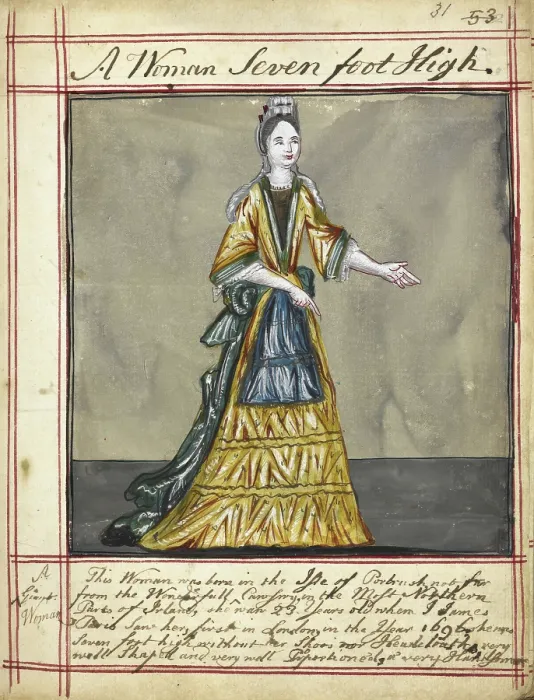 31 53
A Woman Seven foot High.
A
Giant
Woman
This Woman was born in the Isle of Porbrush not far
from the Wonderfull Causway in the Most Northern
Parts of Irland, she was 23 Years old when I James
Paris Saw her, first in London, in the Year 1696, she was
Seven foot high, without her Shoes nor Headcloaths, very
well Shaped and very well Proportioned, a very Handsome